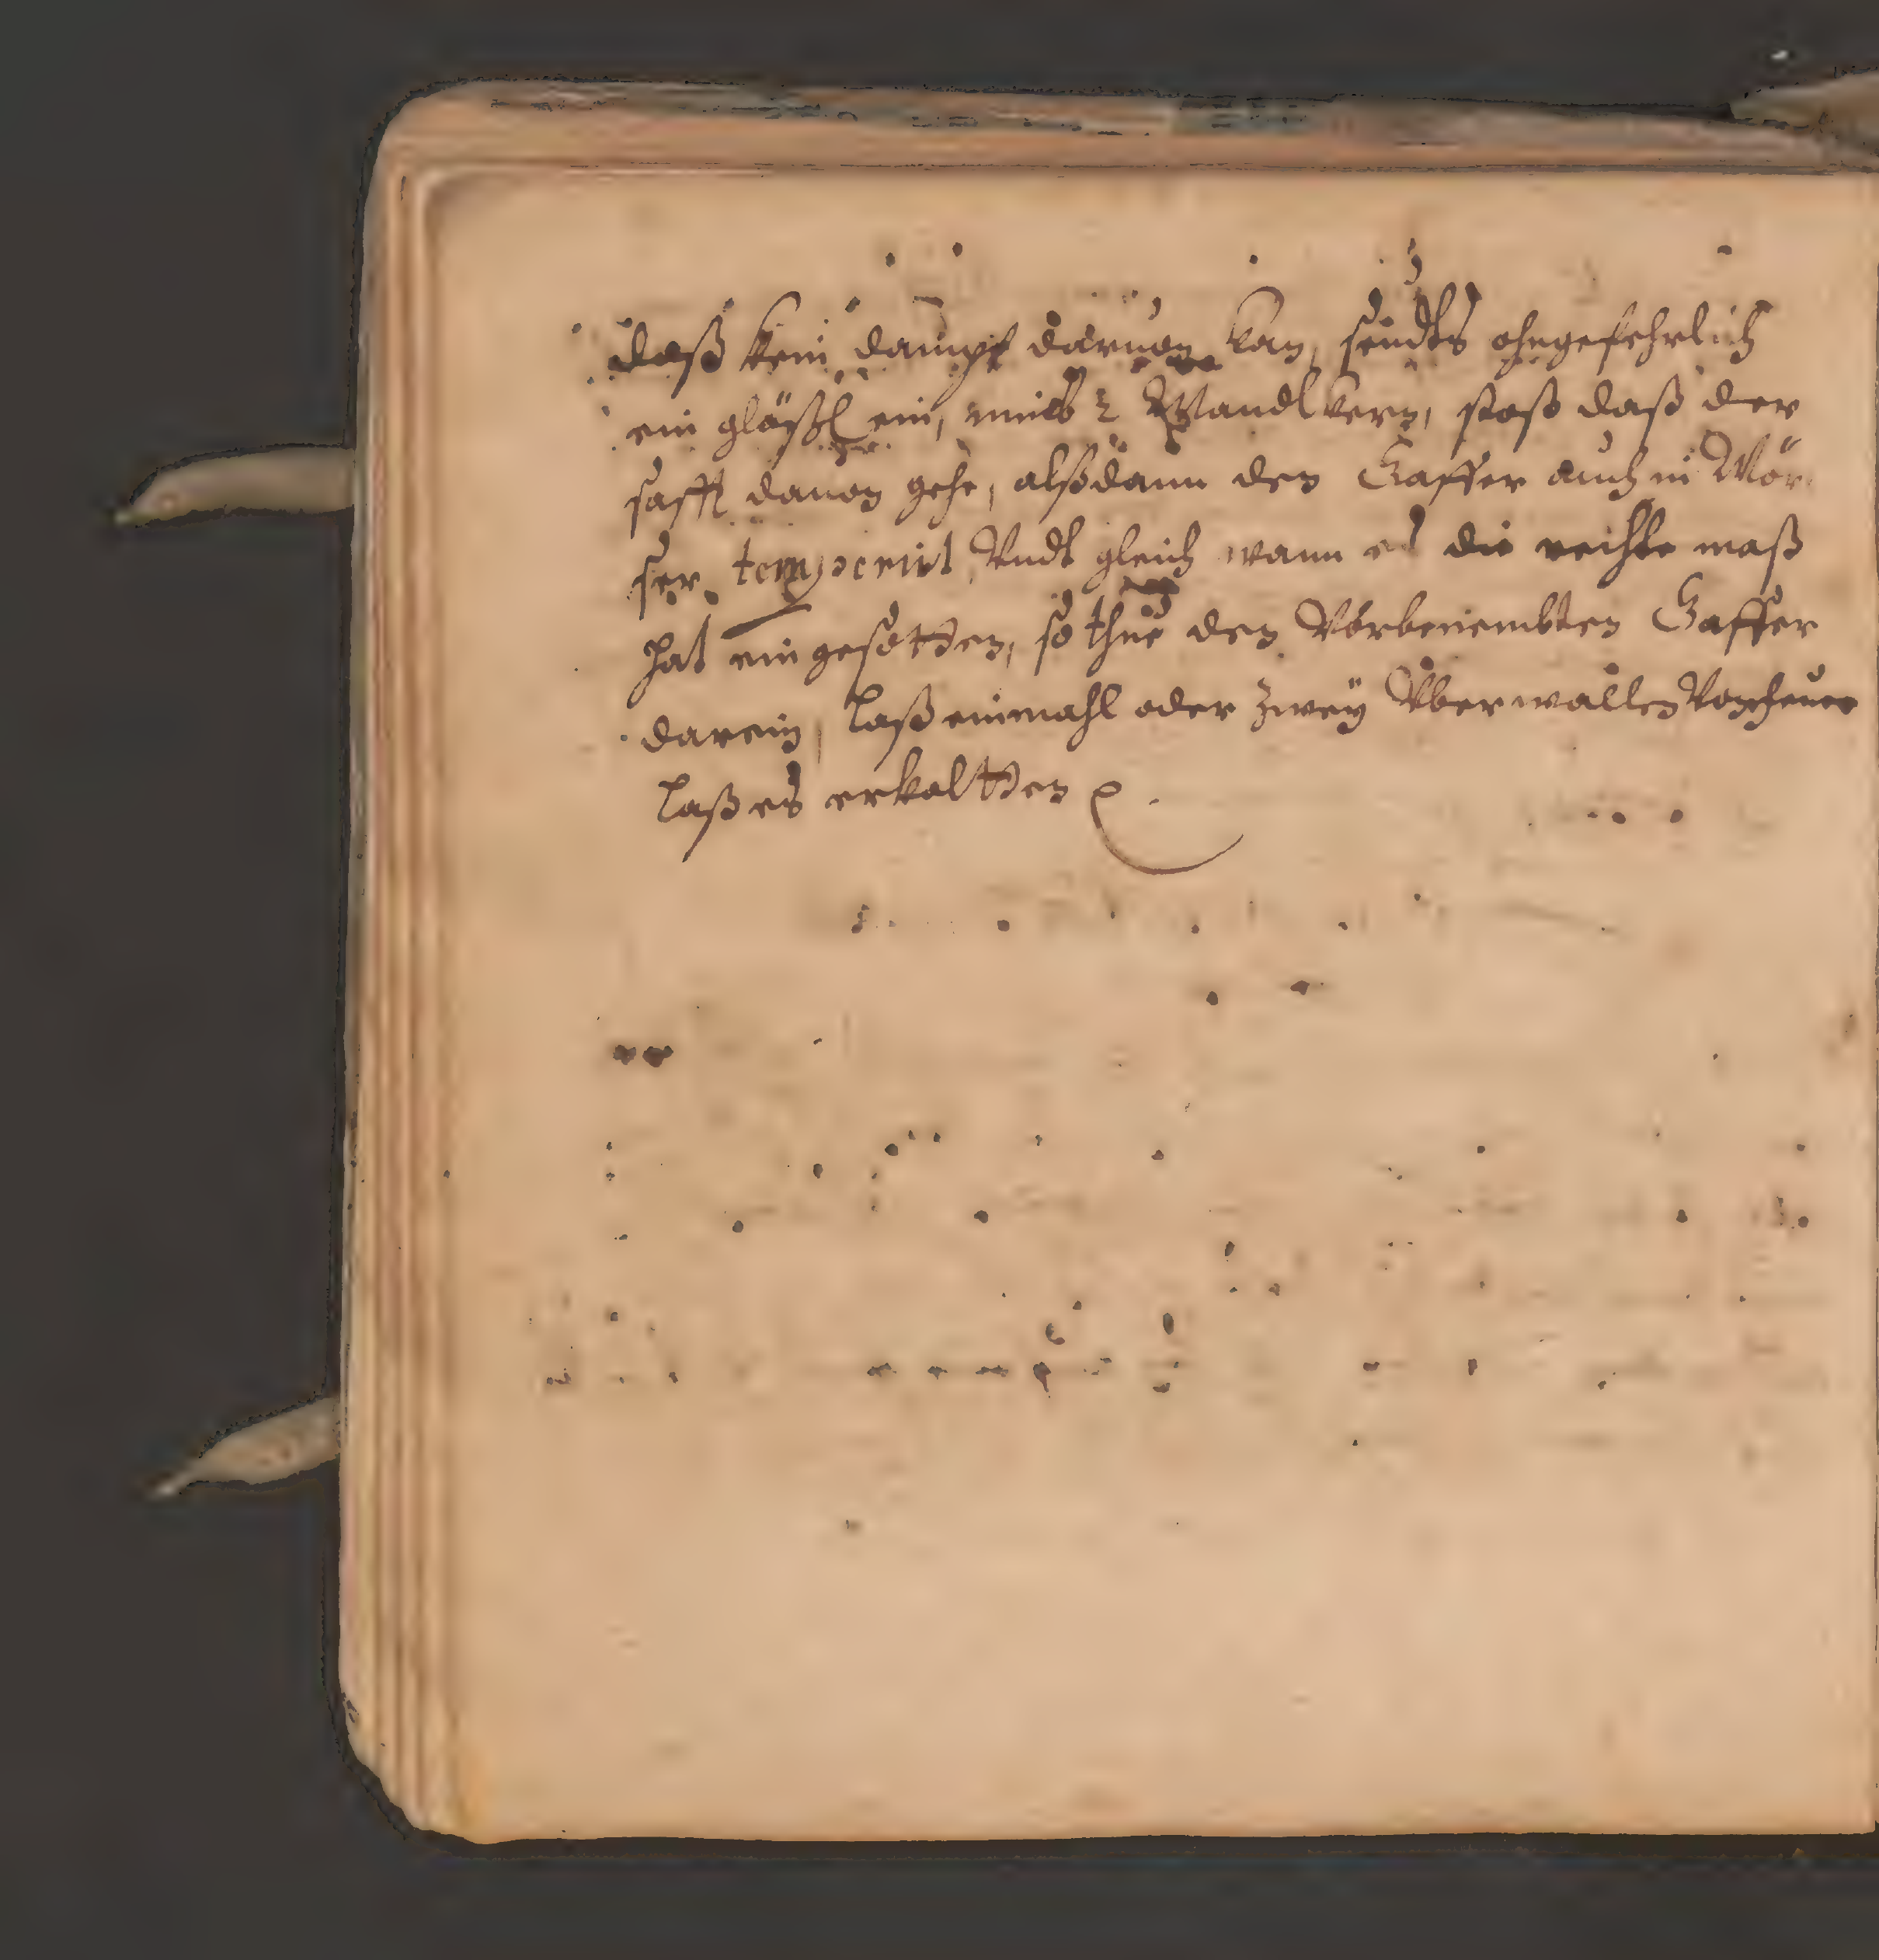 daß kein dampf daruon kan, seudts ohngefehrlich
ein gläßl ein, nimb 2 Mandlkern, stoß daß der
safft dauon gehe, alßdann den Gaffer auch in Mör
ser temperirt, Vndt gleich wann es die rechte maß
hat ein gesotten, so thue den Vorbenembten Gaffer
darein, laß einmahl oder zwey Vberwallen Von feuer
laß es erkaltten